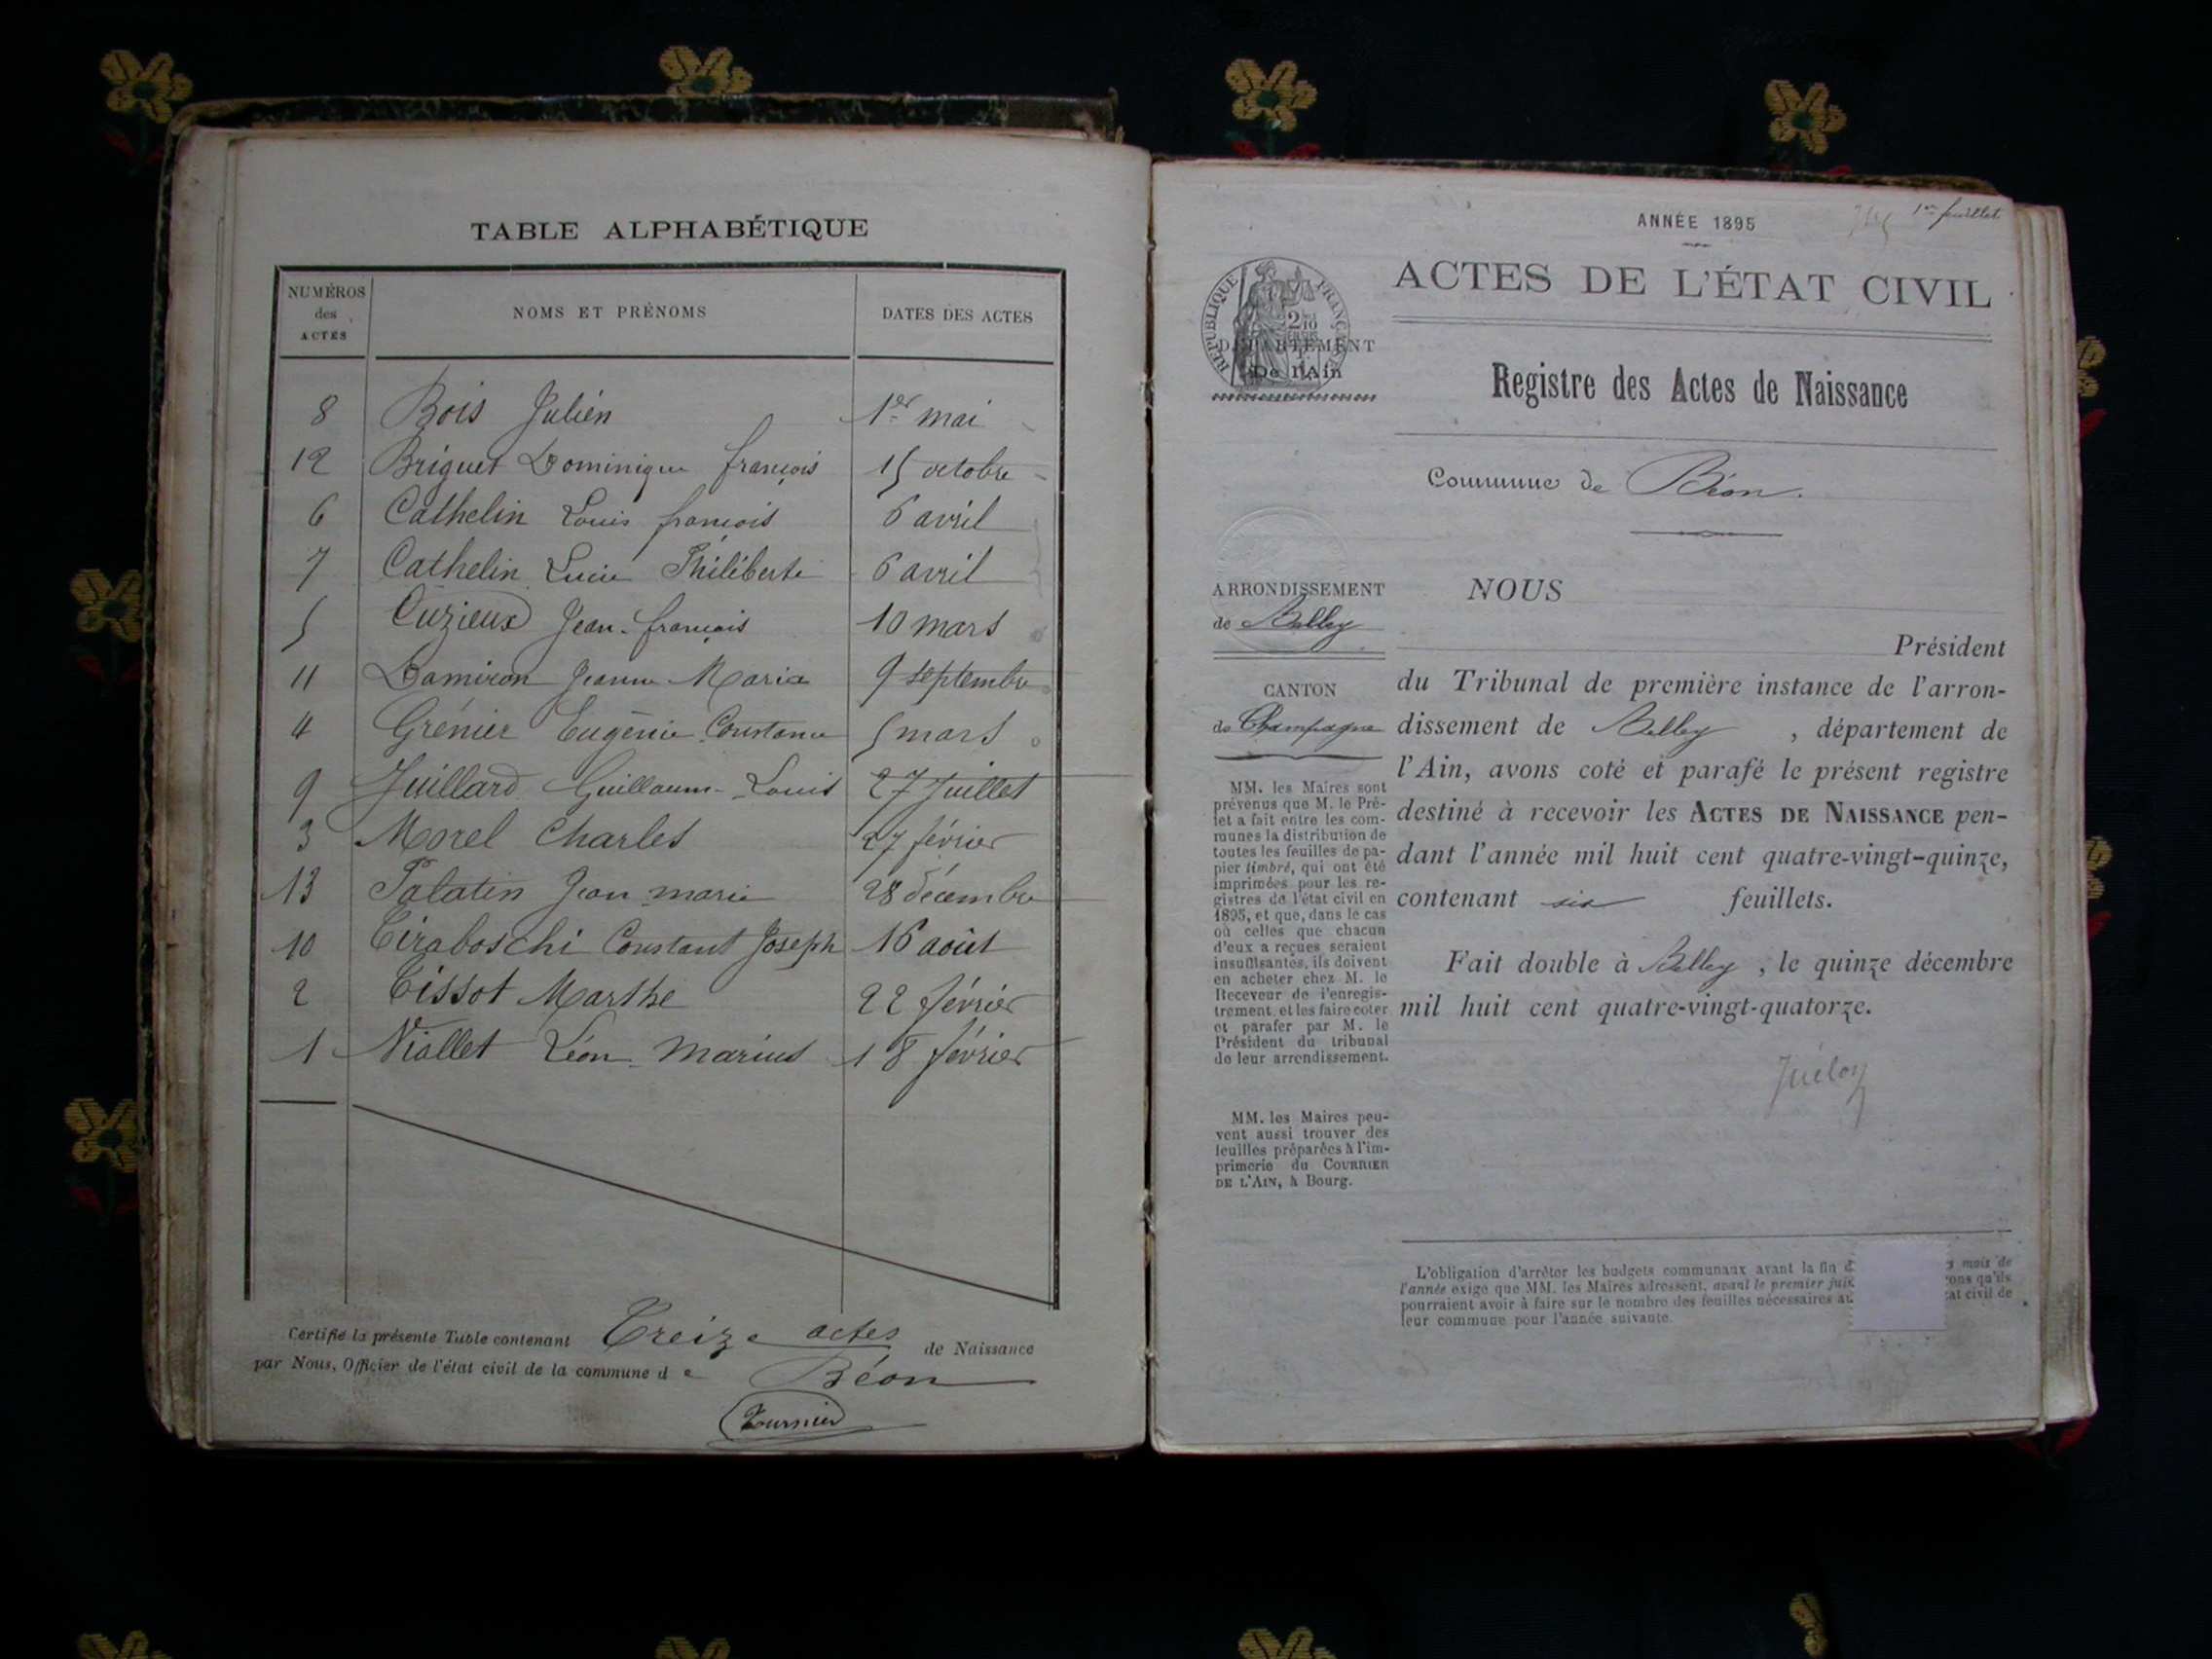 TABLE ALPHABÉTIQUE
NUMÉROS des ACTES NOMS ET PRÉNOMS DATES DES ACTES
8 Bois Julien 1er mai
12 Briguet Dominique françois 15 octobre
6 Cathelin Louis françois 6 avril
7 Cathelin Lucie Philiberte 6 avril
5 Cuzieux Jean-françois 10 mars
11 Damiron Jeanne Maria 9 septembre
4 Grénier Eugénie Constance 5 mars
9 Juillard Guillaume-Louis 27 Juillet
3 Morel Charles 27 février
13 Palatin Jean marie 28 décembre
10 Tiraboschi Constant Joseph 16 août
2 Tissot Marthe 22 février
1 Viallet Léon-Marius 18 février
Certifié la présente Table contenant Treize actes de Naissance
par Nous, Officier de l'état civil de la commune de Béon
Tournier
1er feuillet
ANNÉE 1895
ACTES DE L'ÉTAT CIVIL
RÉPUBLIQUE FRANÇAISE
DÉPARTEMENT
De l'Ain
Registre des Actes de Naissance
Commune de Béon.
ARRONDISSEMENT
de Belley
CANTON
de Champagne
MM. les Maires sont
prévenus que M. le Pré-
fet a fait entre les com-
munes la distribution de
toutes les feuilles de pa-
pier timbré, qui ont été
imprimées pour les re-
gistres de l'état civil en
1895, et que, dans le cas
où celles que chacun
d'eux a reçues seraient
insuffisantes, ils doivent
en acheter chez M. le
Receveur de l'enregis-
trement, et les faire coter
et parafer par M. le
Président du tribunal
de leur arrondissement.
MM. les Maires peu-
vent aussi trouver des
feuilles préparées à l'im-
primerie du COURRIER
DE L'AIN, à Bourg.
NOUS
Président
du Tribunal de première instance de l'arron-
dissement de Belley, département de
l'Ain, avons coté et parafé le présent registre
destiné à recevoir les ACTES DE NAISSANCE pen-
dant l'année mil huit cent quatre-vingt-quinze,
contenant six feuillets.
Fait double à Belley, le quinze décembre
mil huit cent quatre-vingt-quatorze.
L'obligation d'arrêter les budgets communaux avant la fin d mois de
l'année exige que MM. les Maires adressent, avant le premier juin qu'ils
pourraient avoir à faire sur le nombre des feuilles nécessaires au civil de
leur commune pour l'année suivante.